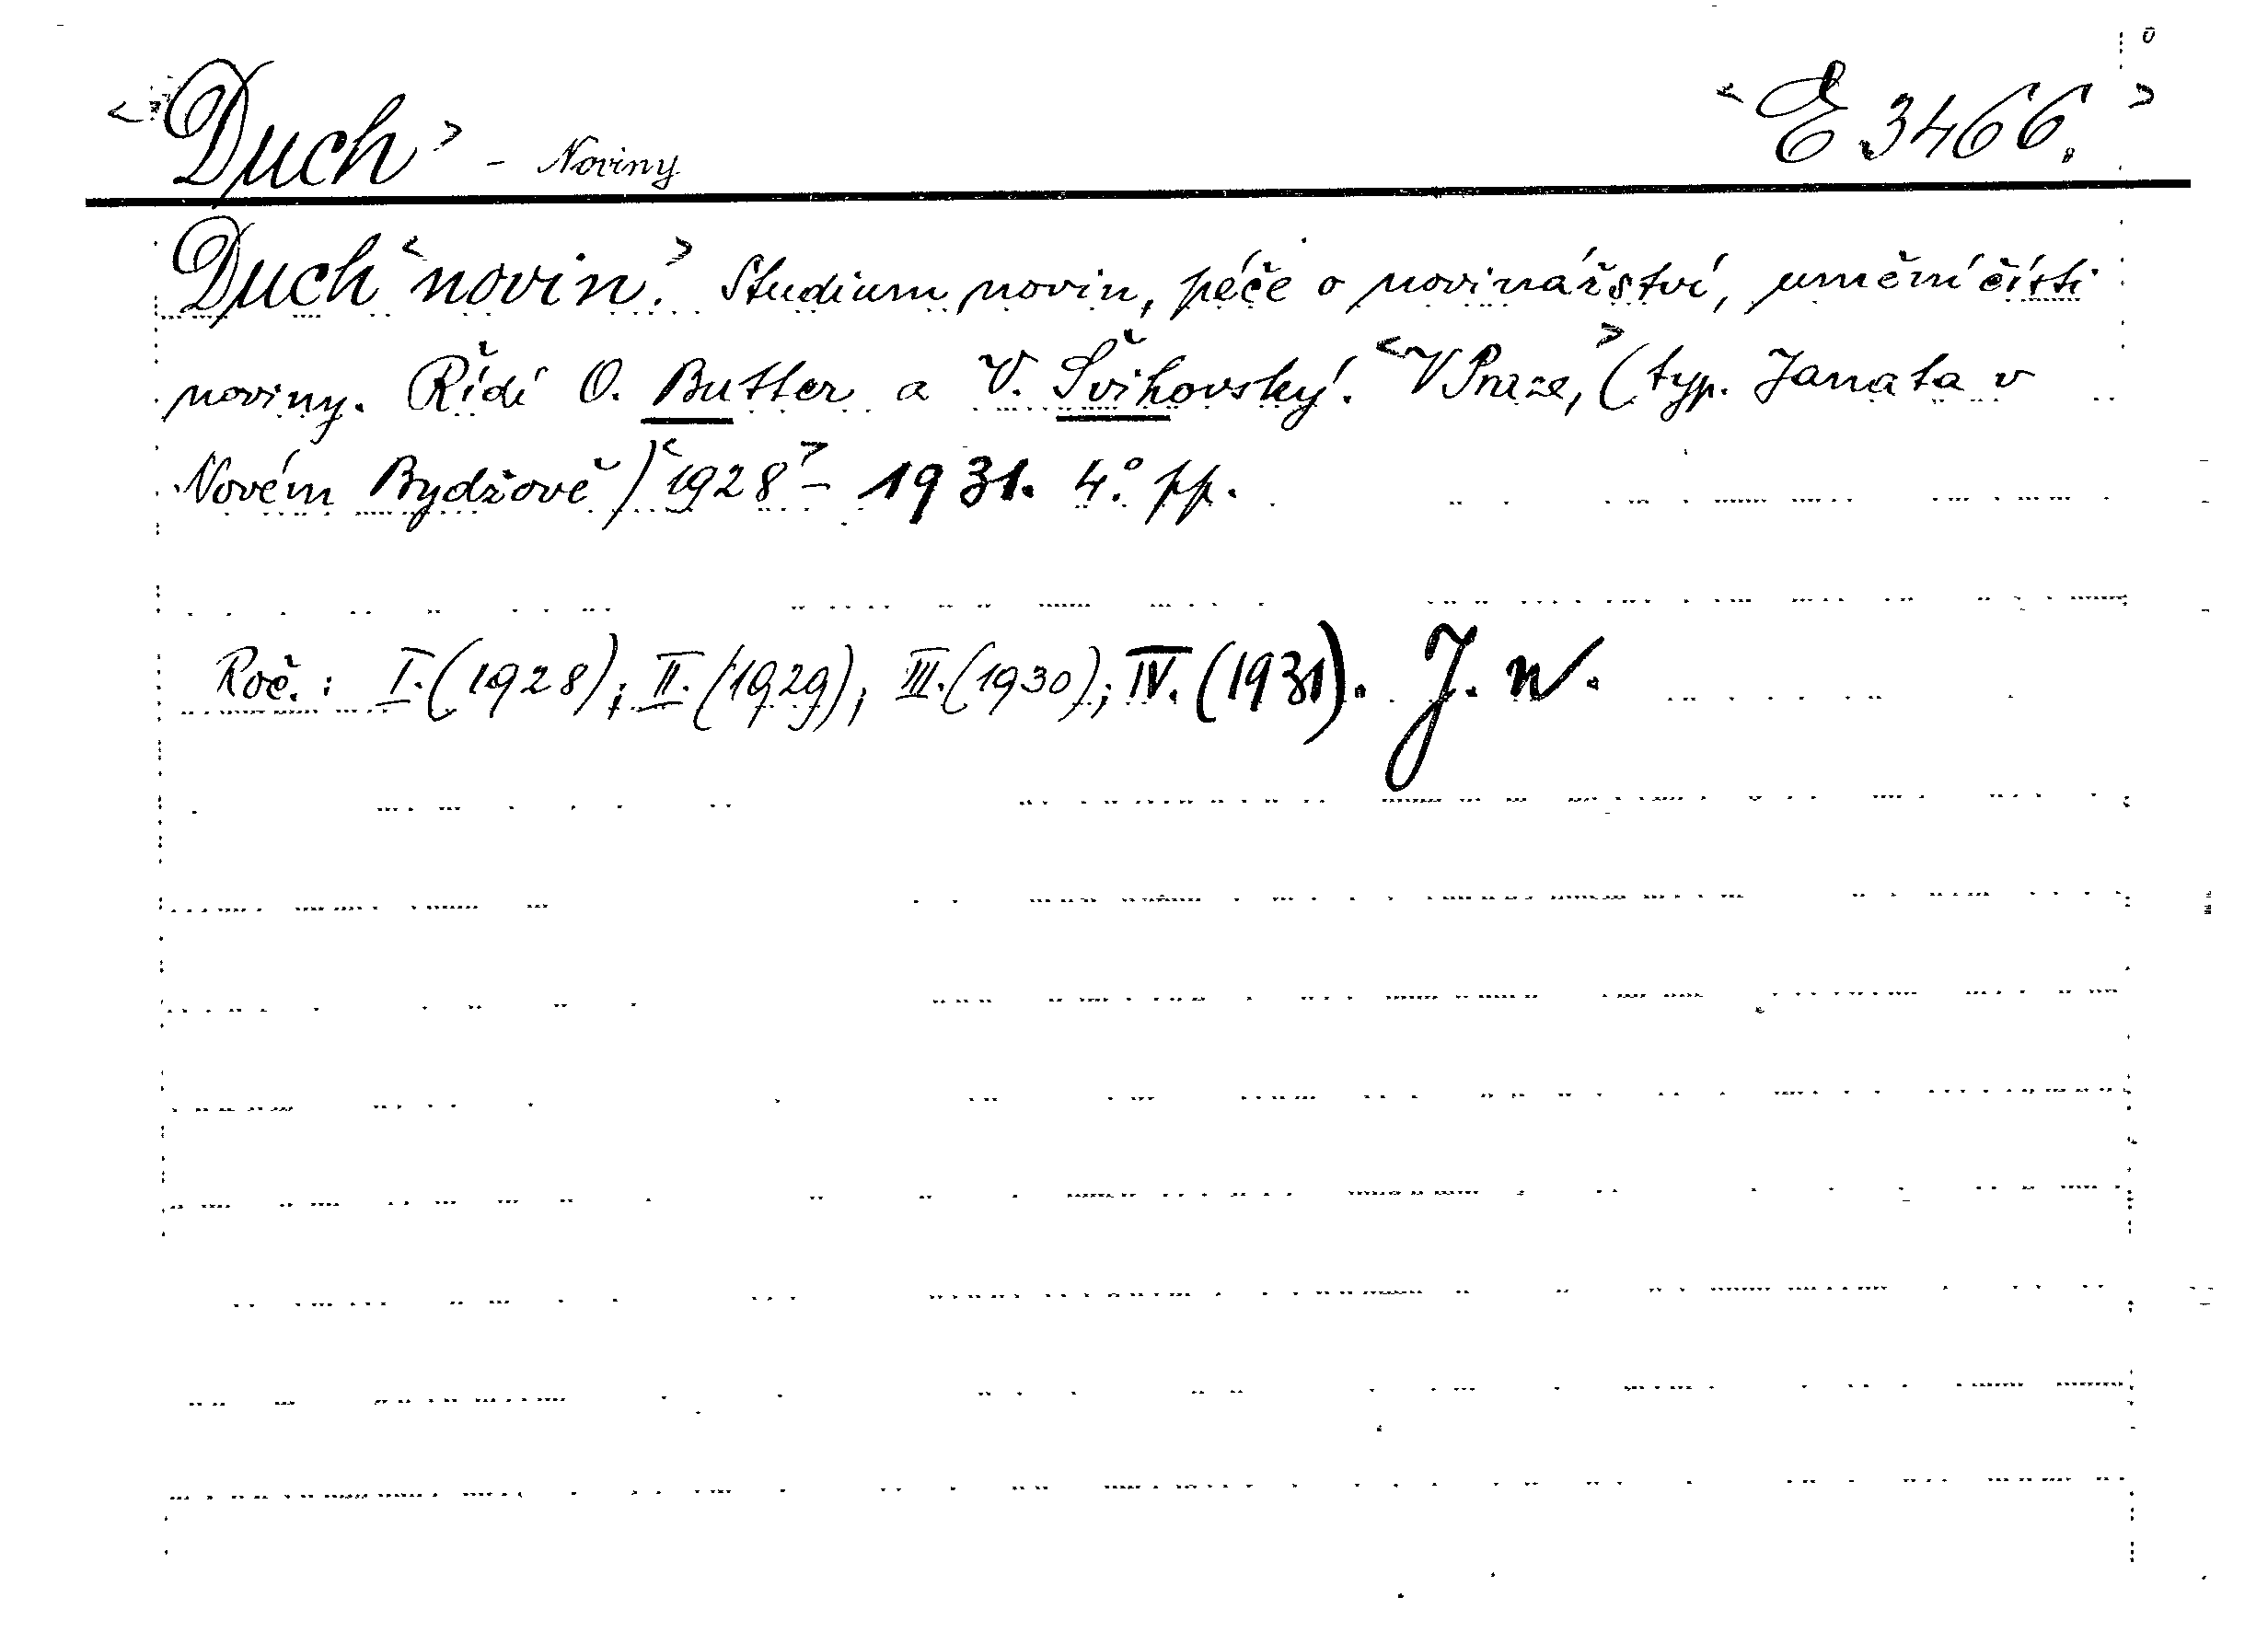 <Duch> - Noviny <E 3466.>
Duch <novin.> Studium novin, péče o novinářství, umění čísti
noviny. Řídí O. Butter a V. Švihovský. <V Praze,> (typ. Janata v
Novém Bydžově) <1928> - 1931. 4.° pp.
Roč.: I. (1928); II. (1929); III. (1930); IV. (1931). J. N.